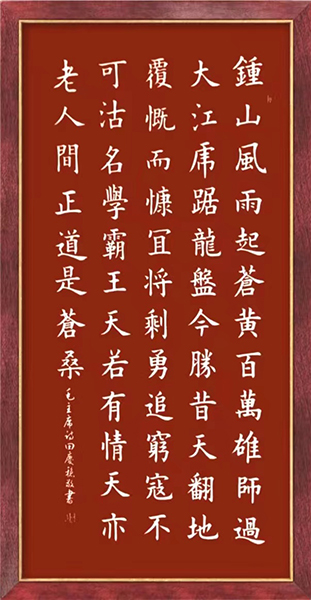 鍾山風雨起蒼黄百萬雄師過
大江虎踞龍盤今勝昔天翻地
覆慨而慷冝將剩勇追窮寇不
可沽名學霸王天若有情天亦
老人間正道是蒼桑
毛主席詩田慶敬書